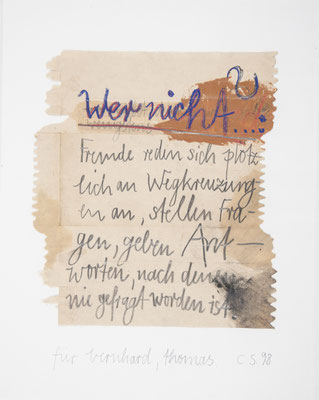 Wer nicht...?
Fremde reden sich plötz
lich an Wegkreuzung
en an, stellen Fra-
gen, geben Ant-
worten, nach denen
nie gefragt worden ist
für bernhard, thomas. C.S. 98